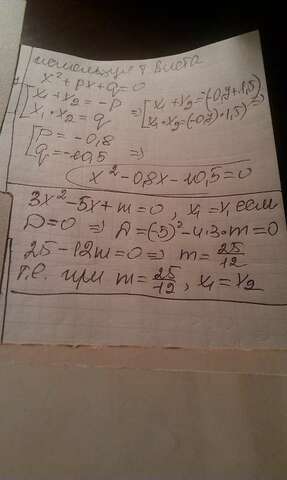 используя т. Виета
x² + px + q = 0
[x₁ + x₂ = -p
x₁ · x₂ = q ⇒ [x₁ + x₂ = (-0,7 + 1,5)
x₁ · x₂ = (-0,7) · 1,5) ⇒
[p = -0,8
q = -10,5 ⇒
x² - 0,8x - 10,5 = 0
3x² - 5x + m = 0, x₁ = x, если
D = 0 ⇒ D = (-5)² - 4·3·m = 0
25 - 12m = 0 ⇒ m = 25/12
т.е. при m = 25/12, x₁ = x₂